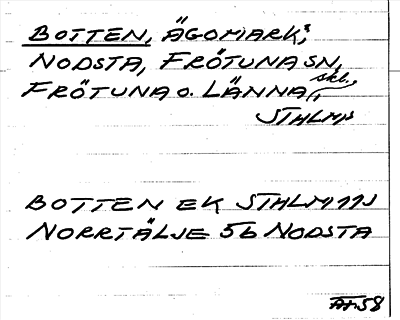 BOTTEN, ÄGOMARK,
NODSTA, FRÖTUNA SN,
FRÖTUNA O. LÄNNA skl.,
STHLMS

BOTTEN EK STHLM 11J
NORRTÄLJE 5b NODSTA